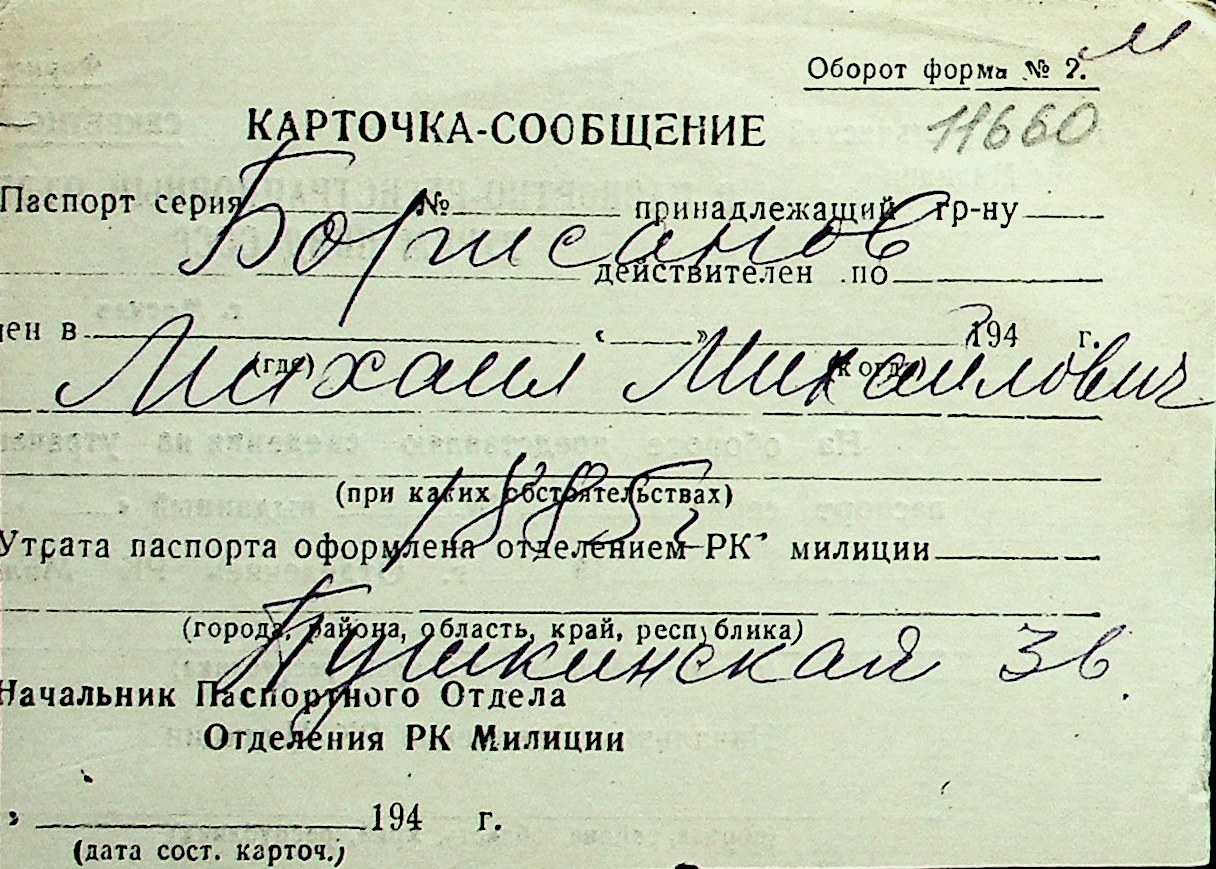 м
Оборот форма № 2.
КАРТОЧКА-СООБЩЕНИЕ
11660
Паспорт серия № принадлежащий гр-ну
Борисанов
действителен по
ен в « » 194 г.
(где) (когда)
Михаил Михайлович
(при каких обстоятельствах)
1885г
Утрата паспорта оформлена отделением РК милиции
(города, района, область, край, республика)
Пушкинская 3в.
Начальник Паспортного Отдела
Отделения РК Милиции
» 194 г.
(дата сост. карточ.)